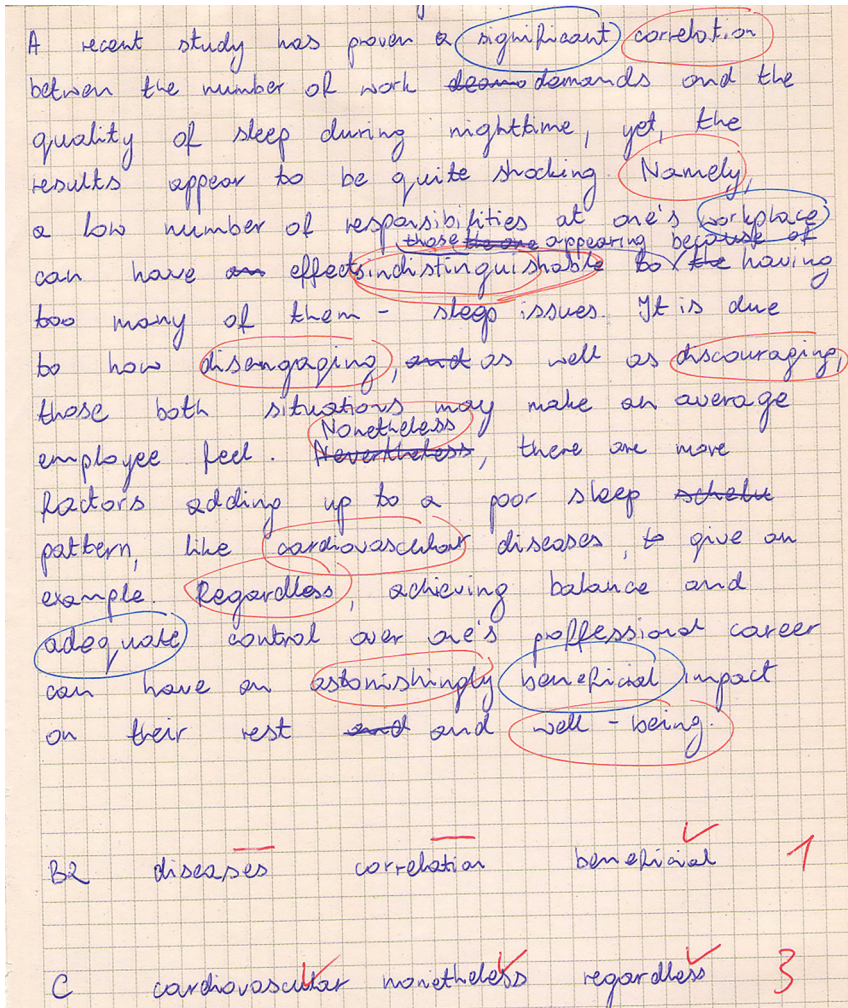 A recent study has proven a significant correlation
betwen the number of work demands and the
quality of sleep during nighttime, yet, the
results appear to be quite shocking. Namely,
a low number of responsibilities at one's workplace
those appearing because of
can have effects indistinguishable to having
too many of them - sleep issues. It is due
to how disengaging, as well as discouraging,
those both situations may make an average
Nonetheless
employee feel. Nevertheless, there are more
factors adding up to a poor sleep
pattern, like cardiovascular diseases, to give an
example. Regardless, achieving balance and
adequate control over one's proffessional career
can have an astonishingly beneficial impact
on their rest and and well-being.
B2 diseases correlation beneficial 1
C cardiovascular nonetheless regardless 3